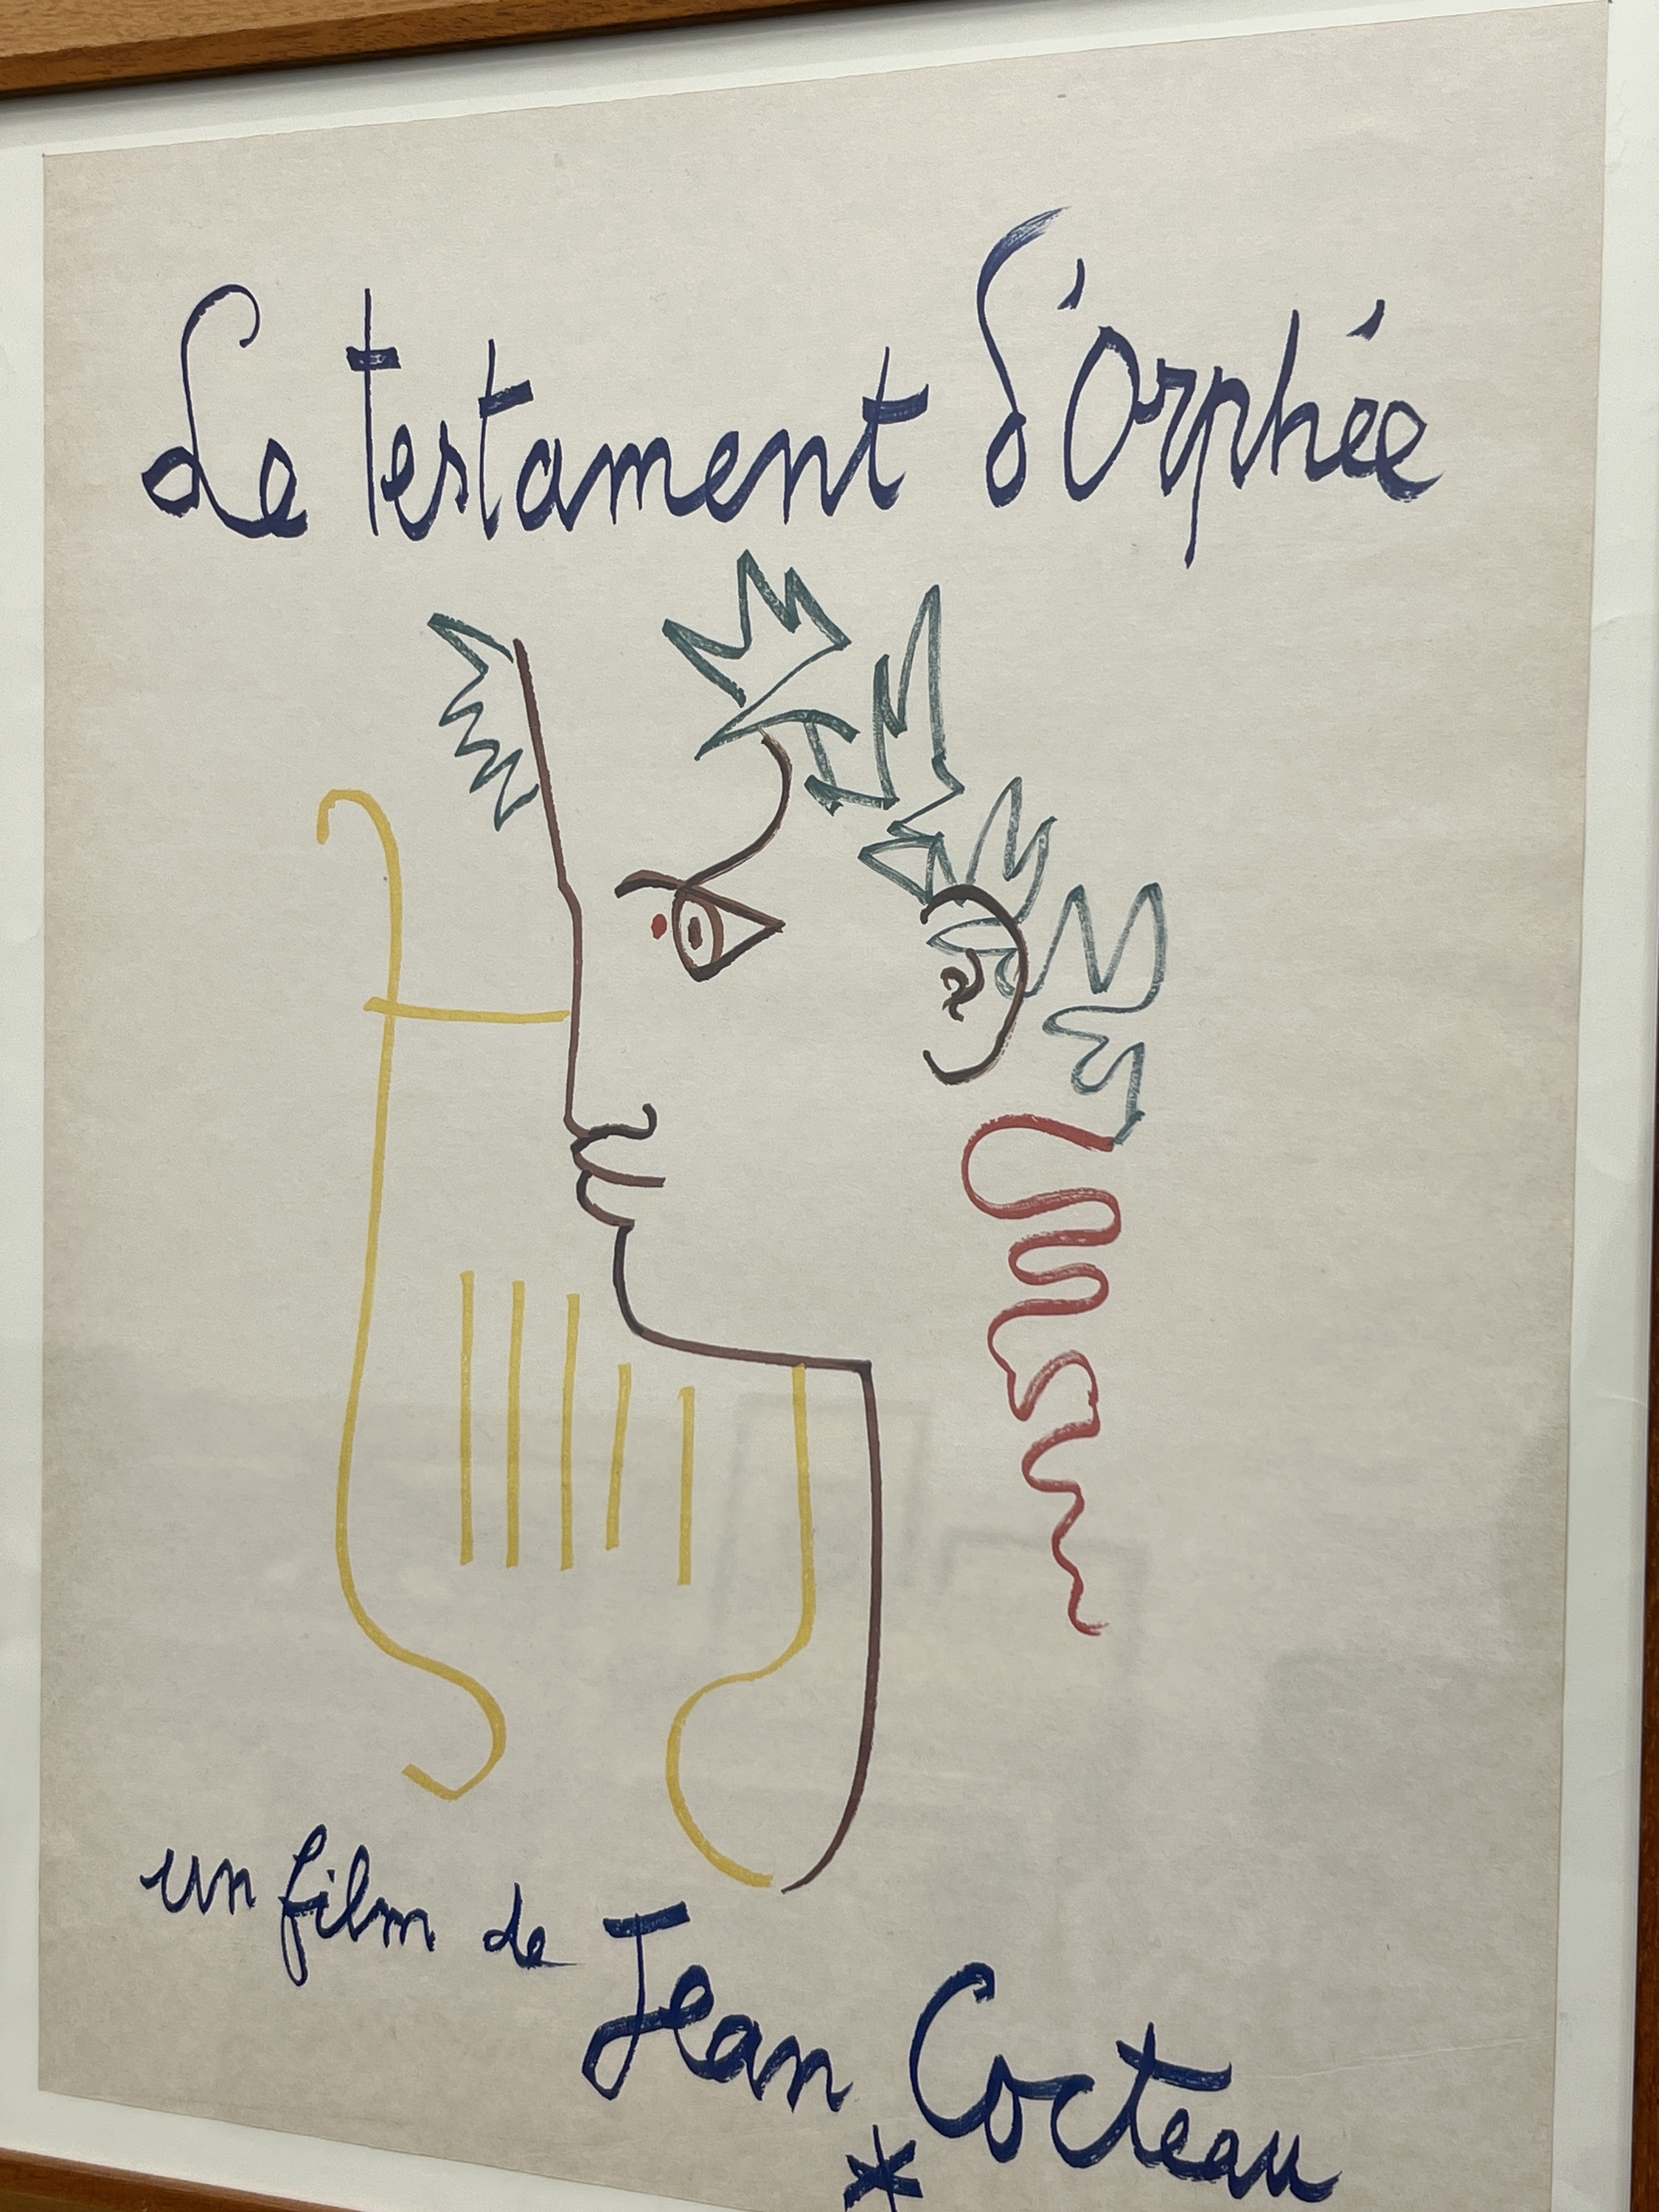 Le testament d'Orphée
un film de Jean Cocteau
*